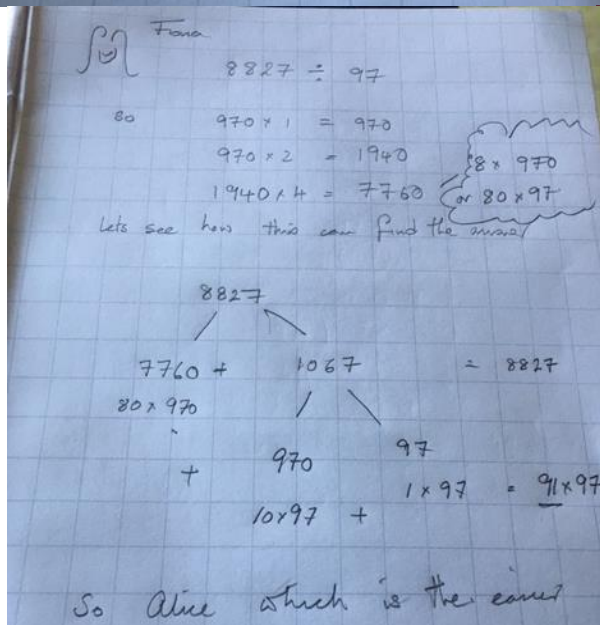 Fiona
8827 ÷ 97
80 970 × 1 = 970
970 × 2 = 1940
1940 × 4 = 7760
8 × 970
or 80 × 97
Lets see how this can find the answer
8827
7760 + 1067 = 8827
80 × 970
+ 970 97
10×97 + 1 × 97 = 91×97
So Alice which is the easier